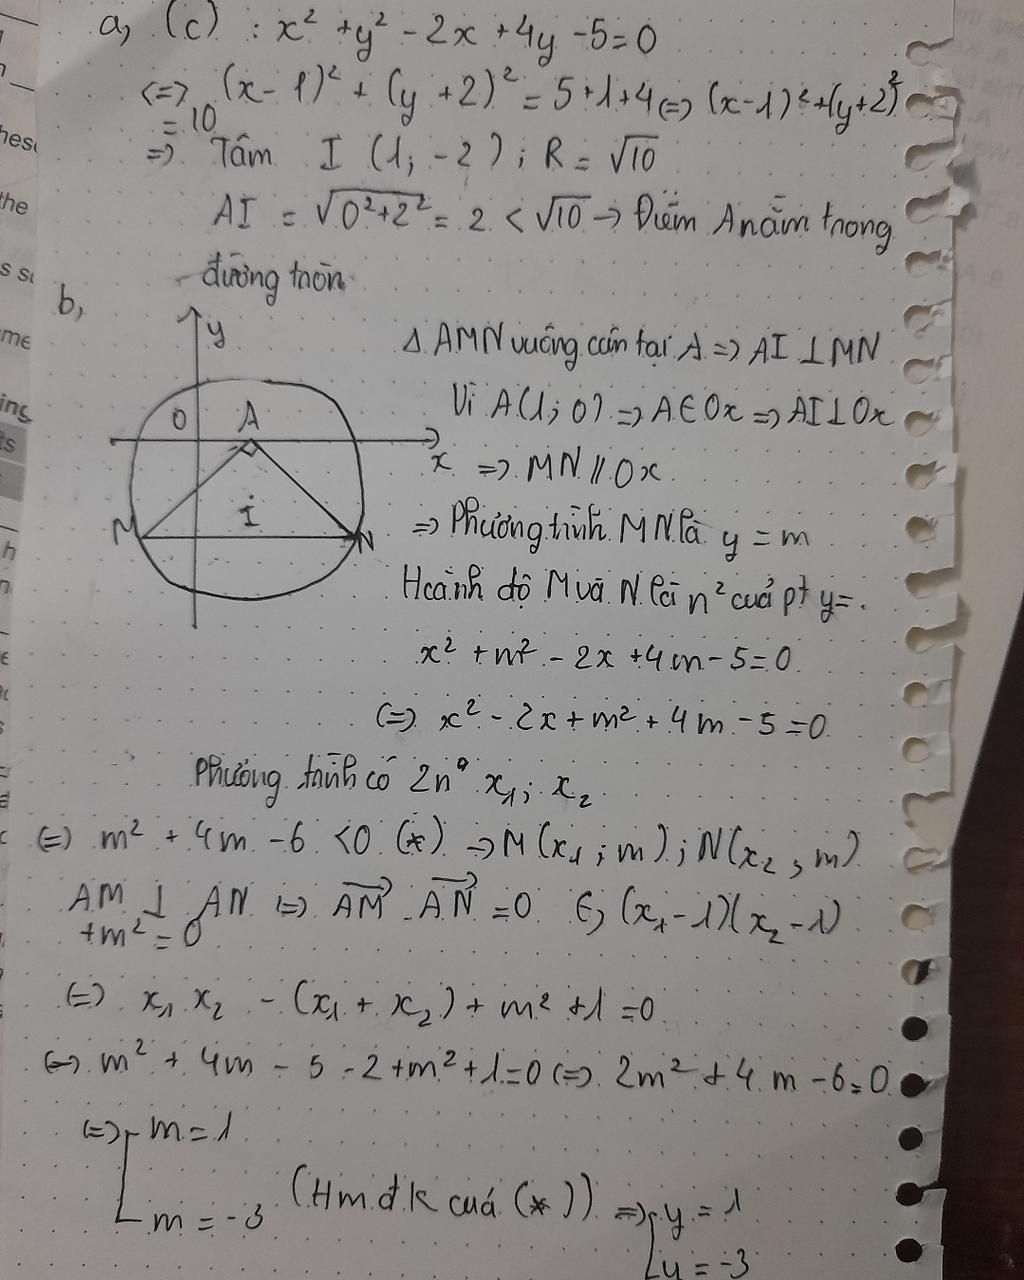 a, (c) : x² + y² - 2x + 4y - 5 = 0
<=> (x - 1)² + (y + 2)² = 5 + 1 + 4 <=> (x - 1)² + (y + 2)²
= 10
=> Tâm I (1; -2); R = √10
AI = √0² + 2² = 2 < √10 → Điểm A nằm trong
đường tròn
b,
y
O A
x
I
M N
Δ AMN vuông cân tại A => AI ⊥ MN
Vì A(1; 0) => A ∈ Ox => AI ⊥ Ox
=> MN // Ox
=> Phương trình MN là y = m
Hoành độ M và N là n² của pt y = .
x² + m² - 2x + 4m - 5 = 0
(=) x² - 2x + m² + 4m - 5 = 0
Phương trình có 2n⁰ x₁; x₂
(=) m² + 4m - 6 < 0 (*) → M(x₁; m); N(x₂, m)
AM ⊥ AN (=) AM→ . AN→ = 0 (=) (x₁ - 1)(x₂ - 1)
+ m² = 0
(=) x₁ x₂ - (x₁ + x₂) + m² + 1 = 0
(=) m² + 4m - 5 - 2 + m² + 1 = 0 (=) 2m² + 4m - 6 = 0
(=) [ m = 1
m = -3 (Hm đk cuả (*)) => [ y = 1
y = -3